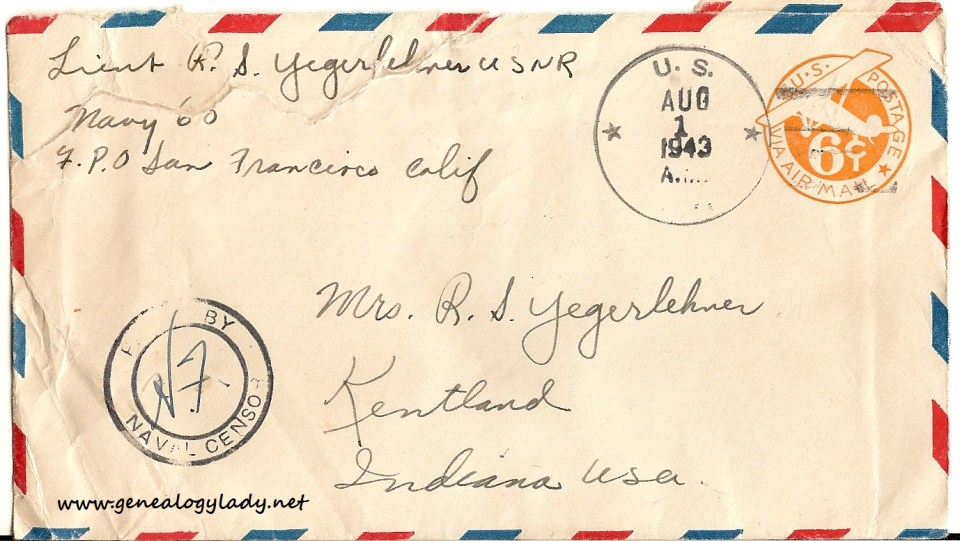 Lieut R. S. Yegerlehner USNR
Navy 60
F.P.O San Francisco Calif
U. S.
AUG
1
1943
A.M.
U.S. POSTAGE
6¢
VIA AIR MAIL
Mrs. R. S. Yegerlehner
Kentland
Indiana USA.
BY
NAVAL CENSOR
www.genealogylady.net